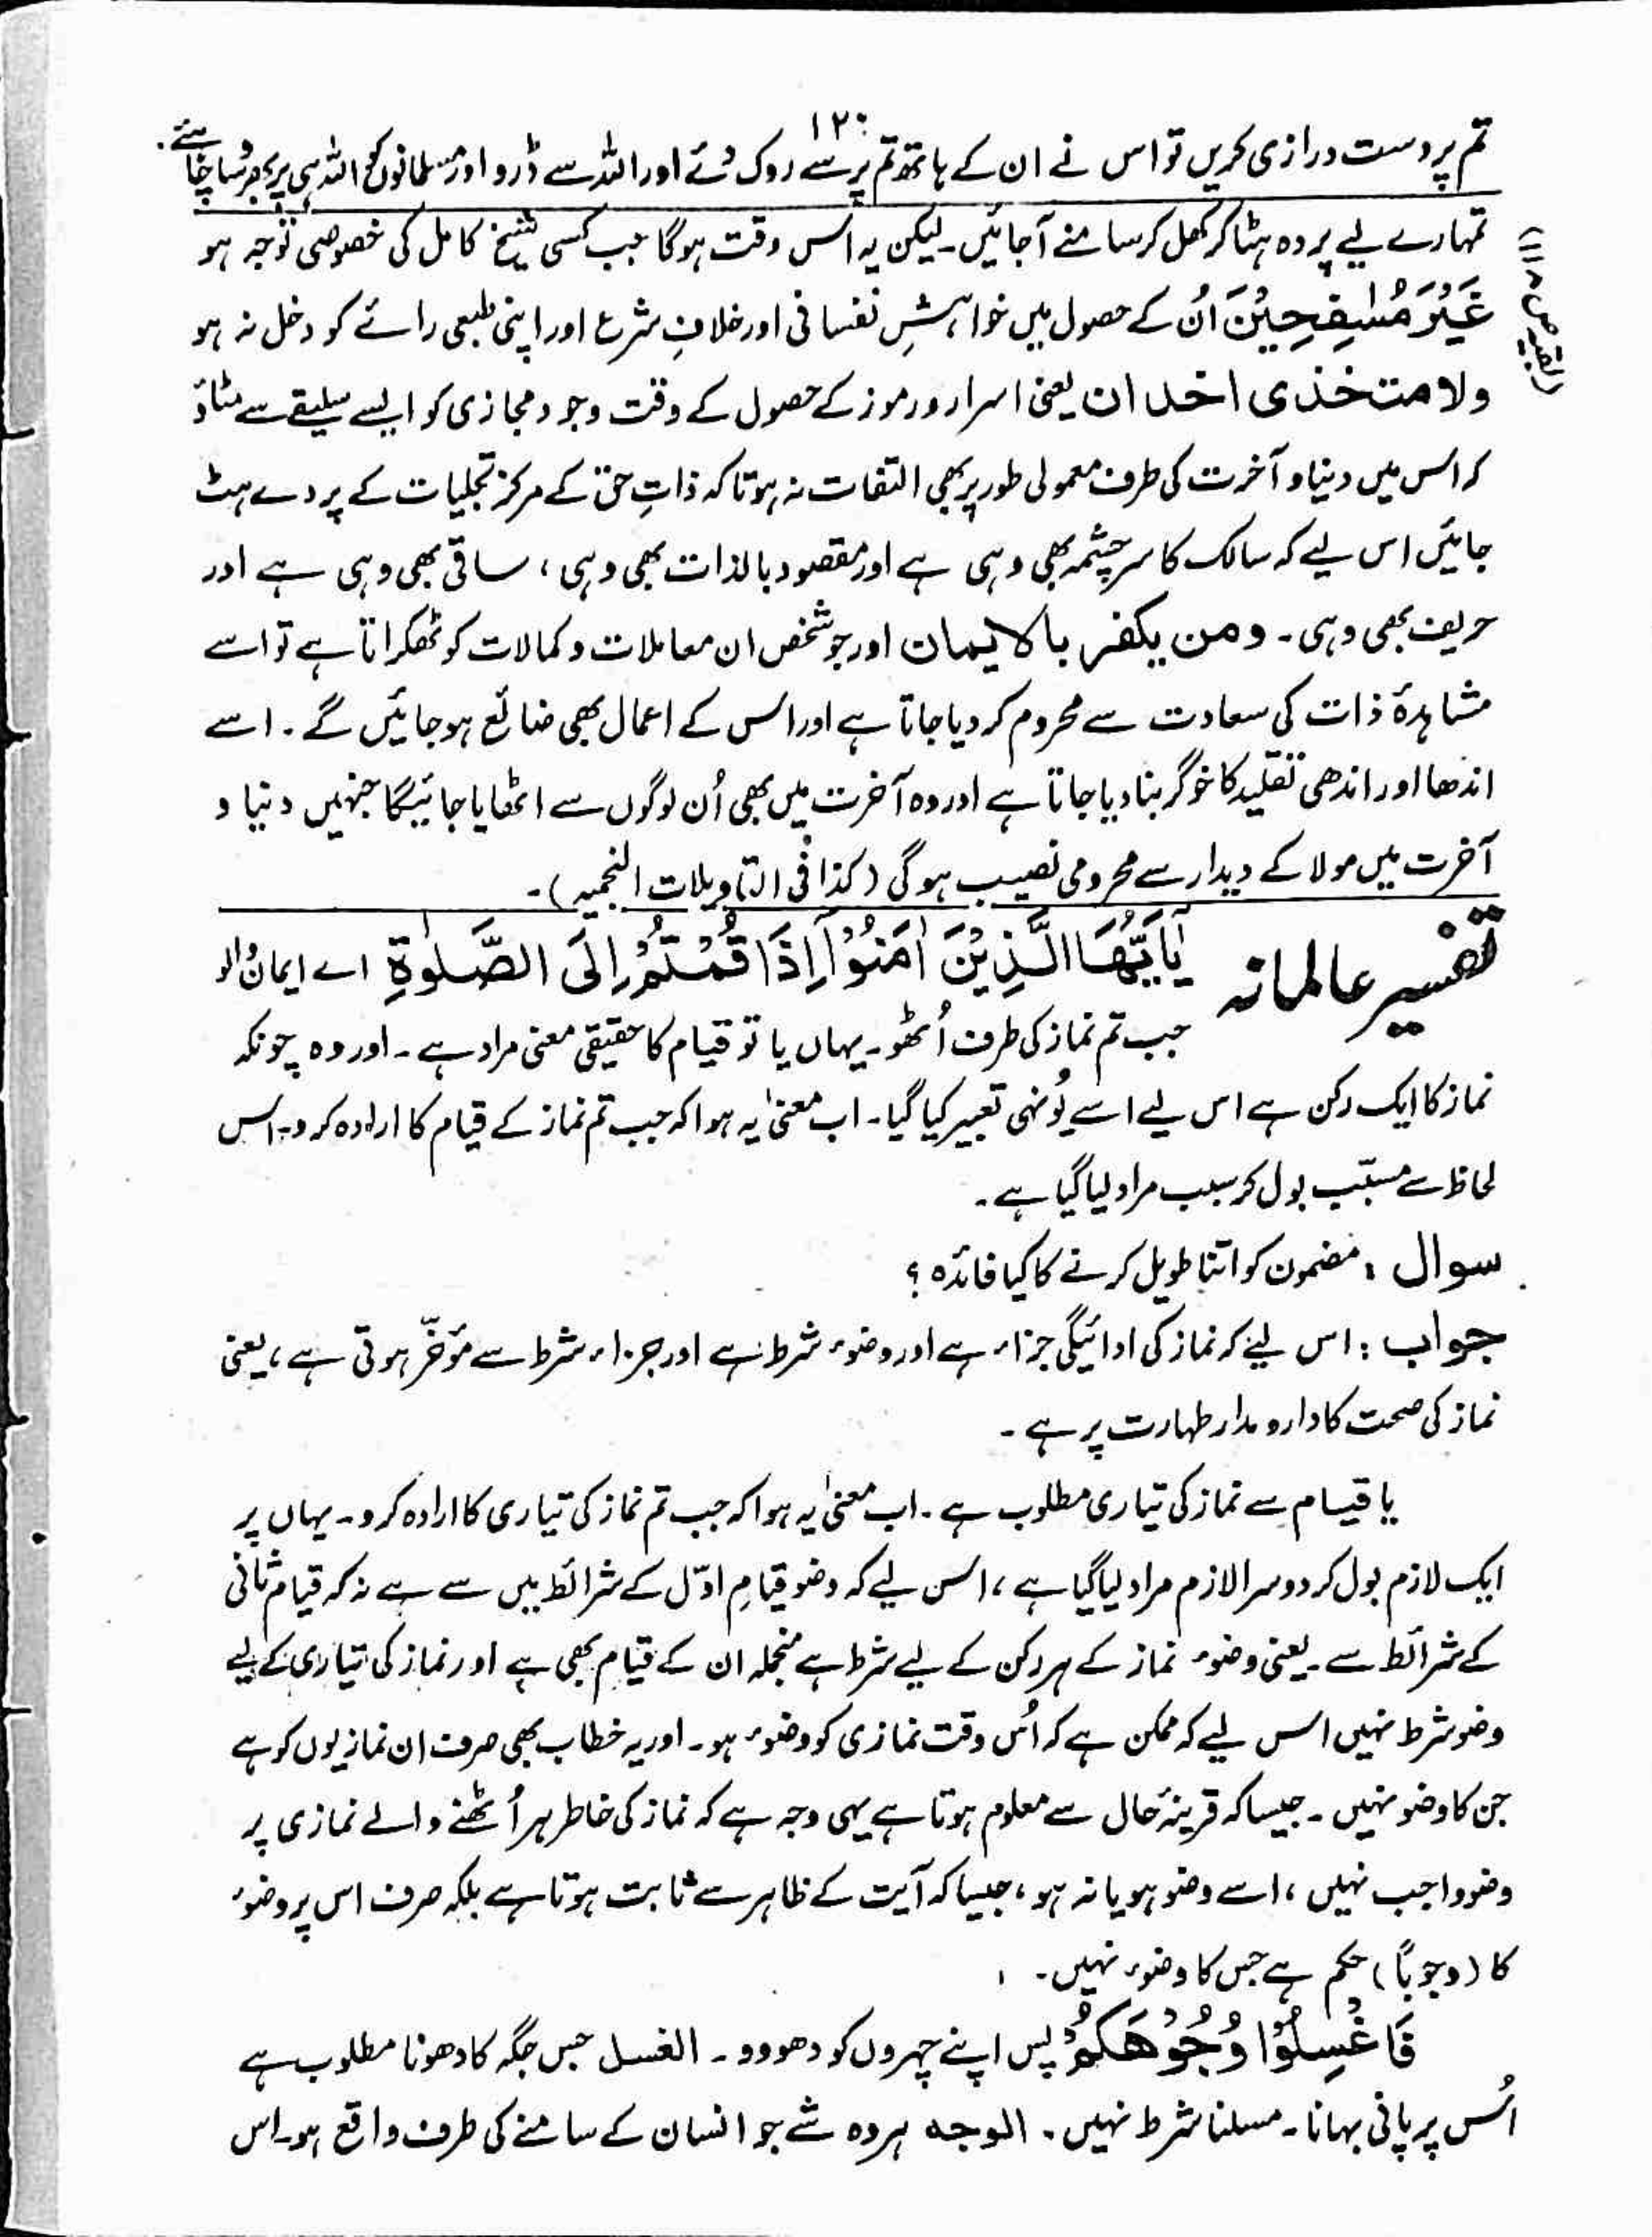 ۱۲۰
تم پر دست درازی کریں تو اس نے ان کے ہاتھ تم پر سے روک دئے اور اللہ سے ڈرو اور مسلمانوں کو اللہ ہی پر بھروسا چاہئے۔
(بقیہ ص ۱۱۸)
تمہارے لیے پردہ ہٹا کر کھل کر سامنے آجائیں۔ لیکن یہ اس وقت ہوگا جب کسی شیخ کامل کی خصوصی توجہ ہو
غَيْرَ مُسٰفِحِيْنَ اُن کے حصول میں خواہشِ نفسانی اور خلافِ شرع اور اپنی طبعی رائے کو دخل نہ ہو
ولا متخذی اخدان یعنی اسرار و رموز کے حصول کے وقت وجود مجازی کو ایسے سلیقے سے مٹاؤ
کہ اس میں دنیا و آخرت کی طرف معمولی طور پر بھی التفات نہ ہو تاکہ ذاتِ حق کے مرکز تجلیات کے پردے ہٹ
جائیں اس لیے کہ سالک کا سرچشمہ بھی وہی ہے اور مقصود بالذات بھی وہی ، ساقی بھی وہی ہے اور
حریف بھی وہی ۔ ومن یکفر بالایمان اور جو شخص ان معاملات و کمالات کو ٹھکراتا ہے تو اسے
مشاہدۂ ذات کی سعادت سے محروم کر دیا جاتا ہے اور اس کے اعمال بھی ضائع ہو جائیں گے ۔ اسے
اندھا اور اندھی تقلید کا خوگر بنا دیا جاتا ہے اور وہ آخرت میں بھی اُن لوگوں سے اٹھایا جائیگا جنہیں دنیا و
آخرت میں مولا کے دیدار سے محرومی نصیب ہوگی (کذا فی التاویلات النجمیہ)۔
تفسیر عالمانہ يٰٓاَيُّهَا الَّذِيْنَ اٰمَنُوْٓا اِذَا قُمْتُمْ اِلَى الصَّلٰوةِ اے ایمان والو
جب تم نماز کی طرف اُٹھو۔ یہاں یا تو قیام کا حقیقی معنی مراد ہے ۔ اور وہ چونکہ
نماز کا ایک رکن ہے اس لیے اسے یُونہی تعبیر کیا گیا ۔ اب معنیٰ یہ ہوا کہ جب تم نماز کے قیام کا ارادہ کرو۔ اس
لحاظ سے مسبّب بول کر سبب مراد لیا گیا ہے ۔
سوال : مضمون کو اتنا طویل کرنے کا کیا فائدہ ؟
جواب : اس لیے کہ نماز کی ادائیگی جزاء ہے اور وضوء شرط ہے اور جزاء شرط سے مؤخّر ہوتی ہے ، یعنی
نماز کی صحت کا دارومدار طہارت پر ہے ۔
یا قیام سے نماز کی تیاری مطلوب ہے ۔ اب معنیٰ یہ ہوا کہ جب تم نماز کی تیاری کا ارادہ کرو ۔ یہاں پر
ایک لازم بول کر دوسرا لازم مراد لیا گیا ہے ، اس لیے کہ وضو قیامِ اوّل کے شرائط میں سے ہے نہ کہ قیام ثانی
کے شرائط سے ۔ یعنی وضوء نماز کے ہر رکن کے لیے شرط ہے منجملہ ان کے قیام بھی ہے اور نماز کی تیاری کے لیے
وضو شرط نہیں اس لیے کہ ممکن ہے کہ اُس وقت نمازی کو وضوء ہو ۔ اور یہ خطاب بھی صرف ان نمازیوں کو ہے
جن کا وضو نہیں ۔ جیسا کہ قرینۂ حال سے معلوم ہوتا ہے یہی وجہ ہے کہ نماز کی خاطر ہر اُٹھنے والے نمازی پر
وضو واجب نہیں ، اسے وضو ہو یا نہ ہو ، جیسا کہ آیت کے ظاہر سے ثابت ہوتا ہے بلکہ صرف اس پر وضوء
کا (وجوباً) حکم ہے جس کا وضوء نہیں ۔
فَاغْسِلُوْا وُجُوْهَكُمْ پس اپنے چہروں کو دھوو ۔ الغسل جس جگہ کا دھونا مطلوب ہے
اُس پر پانی بہانا۔ مسلنا شرط نہیں ۔ الوجہ ہر وہ شے جو انسان کے سامنے کی طرف واقع ہو۔ اس